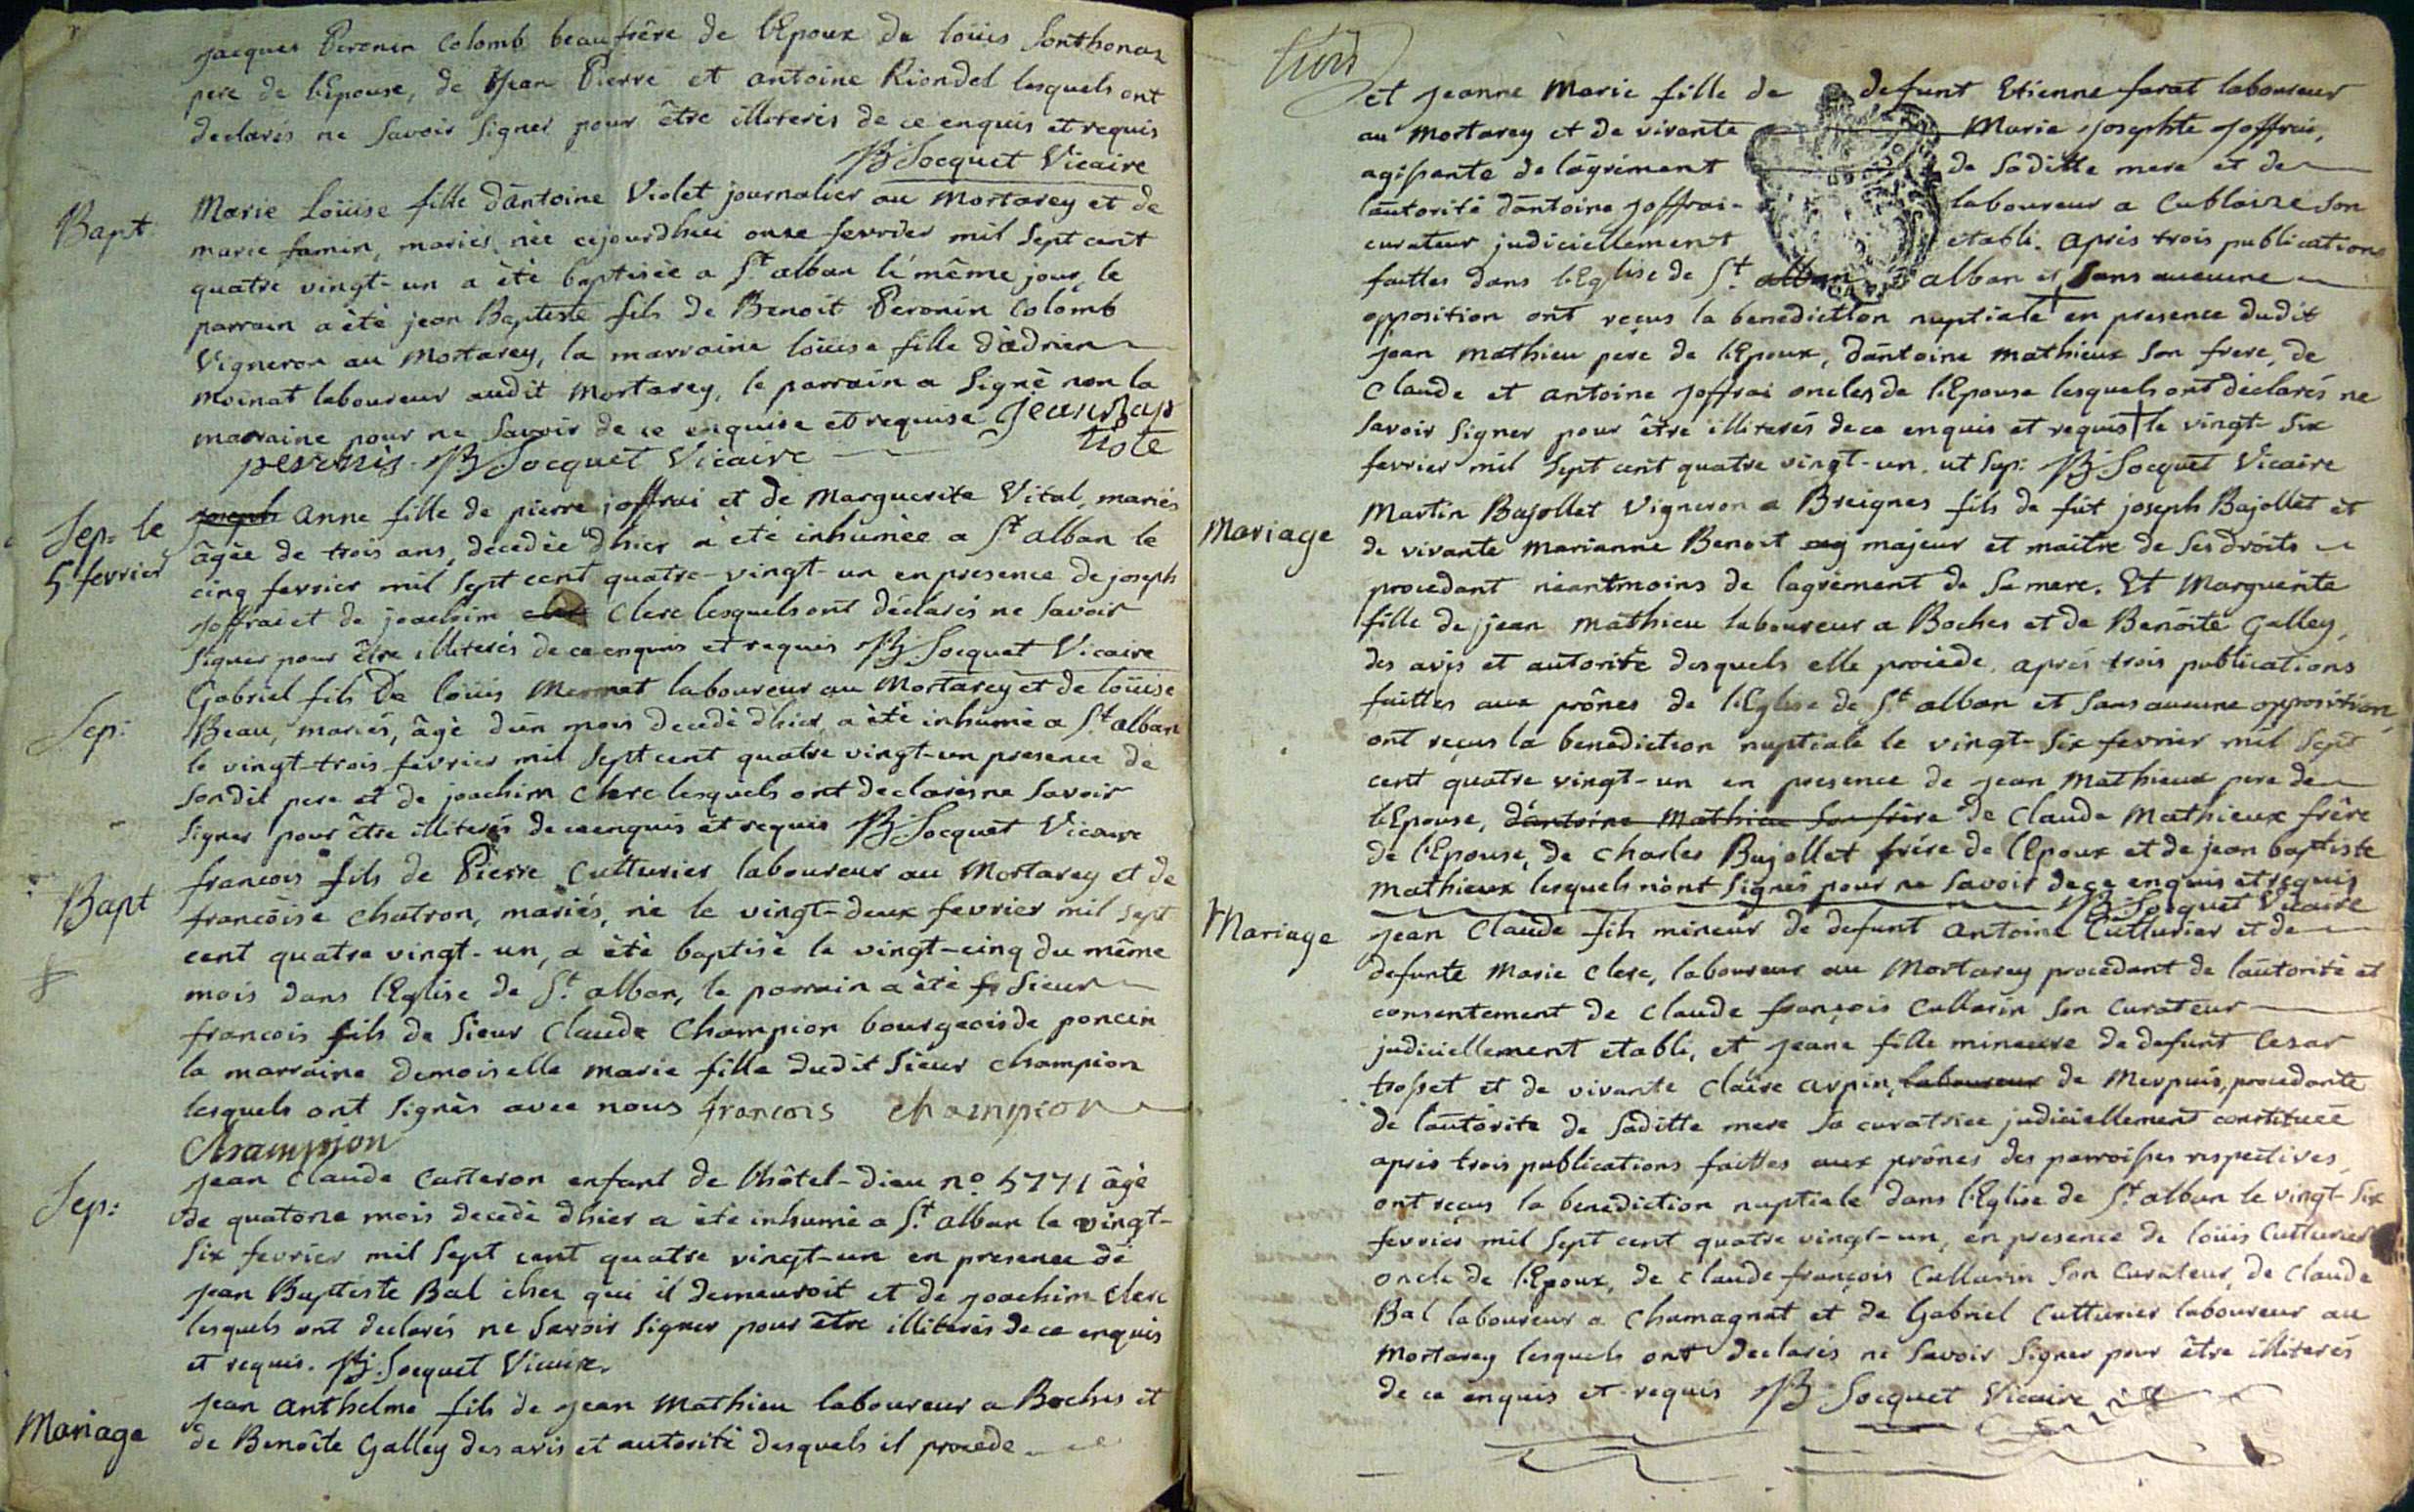 jacques Peronin Colomb beaufrère de l'Epoux de loüis Sonthonas
pere de l'épouse, de Jean Pierre et antoine Riondel lesquels ont
declarés ne savoir signer pour être illiterés de ce enquis et requis
BJ Socquet Vicaire
Bapt
Marie Loüise fille d'antoine Violet journalier au Mortarey et de
marie famin, mariés, née cejourdhui onze fevrier mil Sept cent
quatre vingt-un a été baptisée a St alban le même jour, le
parrain a été jean Baptiste fils de Benoit Peronin Colomb
Vigneron au Mortarey, la marraine loüise fille d'adrien
moinat laboureur audit Mortarey, le parrain a signé non la
marraine pour ne Savoir de ce enquise et requise jean bap
tiste
BJ Socquet Vicaire
Sep: le
5 fevrier
joseph anne fille de pierre joffrai et de Marguerite Vital, mariés
âgée de trois ans, decedée dhier a été inhumée a St alban le
cinq fevrier mil Sept cent quatre-vingt-un en presence de joseph
joffrai et de joachim clerc Clerc lesquels ont déclarés ne Savoir
Signer pour être illiterés de ce enquis et requis BJ Socquet Vicaire
Sep:
Gabriel fils De loüis Mermet laboureur au Mortarey et de loüise
Beau, mariés, âgé d'un mois decedé dhier, a été inhumé a St alban
le vingt-trois fevrier mil Sept cent quatre vingt-un presence de
Sondit pere et de joachim Clerc lesquels ont declarés ne Savoir
Signer pour être illiterés de ce enquis et requis BJ Socquet Vicaire
Bapt
francois fils de Pierre Cutturier laboureur au Mortarey et de
francoise Chatron, mariés, né le vingt-deux fevrier mil Sept
cent quatre vingt-un, a été baptisé le vingt-cinq du même
mois dans l'Eglise de St alban, le parrain a été fr Sieur
francois fils de Sieur Claude Champion bourgeois de poncin
la marraine demoiselle marie fille dudit Sieur Champion
lesquels ont Signés avec nous francois Champion
Champion
Sep:
Jean Claude Carteron enfant de l'hôtel-dieu no. 5771 âgé
de quatorze mois decedé dhier a été inhumé a St. alban le vingt-
Six fevrier mil Sept cent quatre vingt-un en presence de
Jean Baptiste Bal chez qui il demeuroit et de joachim Clerc
lesquels ont declarés ne Savoir Signer pour être illiterés de ce enquis
et requis. BJ Socquet Vicaire
Mariage
Jean Anthelme fils de jean Mathieu laboureur a Boches et
de Benoîte Galley des avis et autorité desquels il procede
et jeanne Marie fille de defunt Etienne farat laboureur
au Mortarey et de vivante Marie josephte joffrai,
agissante de l'agrément de Saditte mere et de
l'autorité d'antoine joffrai laboureur a Cublaize Son
curateur judiciellement etabli. après trois publications
faittes dans l'Eglise de St. alban alban et Sans aucune
opposition ont reçus la benediction nuptiale en presence dudit
jean Mathieu pere de l'Epoux, d'antoine Mathieux Son frere, de
Claude et antoine joffrai oncles de l'Epouse lesquels ont déclarés ne
Savoir Signer pour être illiterés de ce enquis et requis le vingt-Six
fevrier mil Sept cent quatre vingt-un. ut Sup: BJ Socquet Vicaire
Mariage
Martin Bajollet Vigneron a Breignes fils de fût joseph Bajollet et
de vivante Marianne Benoit majeur et maitre de Ses droits
procedant néantmoins de l'agrément de Sa mere. Et Marguerite
fille de jean Mathieu laboureur a Boches et de Benoîte Galley,
des avis et autorité desquels elle procéde. aprés trois publications
faittes aux prônes de l'Eglise de St. alban et Sans aucune opposition
ont reçus la benediction nuptiale le vingt-Six fevrier mil Sept
cent quatre vingt-un en presence de jean Mathieux pere de
l'Epouse, d'antoine Mathieu Son frère de Claude Mathieux frère
de l'Epouse, de Charles Bajollet frére de l'Epoux et de jean baptiste
Mathieux lesquels n'ont Signés pour ne Savoir de ce enquis et requis
BJ Socquet Vicaire
Mariage
Jean Claude fils mineur de defunt antoine Cutturier et de
defunte Marie Clerc, laboureur au Mortarey procedant de l'autorité et
consentement de Claude françois Cullarin Son Curateur
judiciellement etabli, et jeane fille mineure de defunt Cesar
trosset et de vivante Claire arpin, laboureur de Merpuis, procedante
de l'autorité de Saditte mere Sa curatrice judiciellement constituée
après trois publications faittes aux prônes des parroisses respectives,
ont reçus la benediction nuptiale dans l'Eglise de St. alban le vingt-Six
fevrier mil Sept cent quatre vingt-un, en presence de loüis Cutturier
oncle de l'Epoux, de Claude françois Cullarin Son Curateur, de Claude
Bal laboureur a Chamagnat et de Gabriel Cutturier laboureur au
Mortarey lesquels ont declarés ne Savoir Signer pour être illiterés
de ce enquis et requis BJ Socquet Vicaire